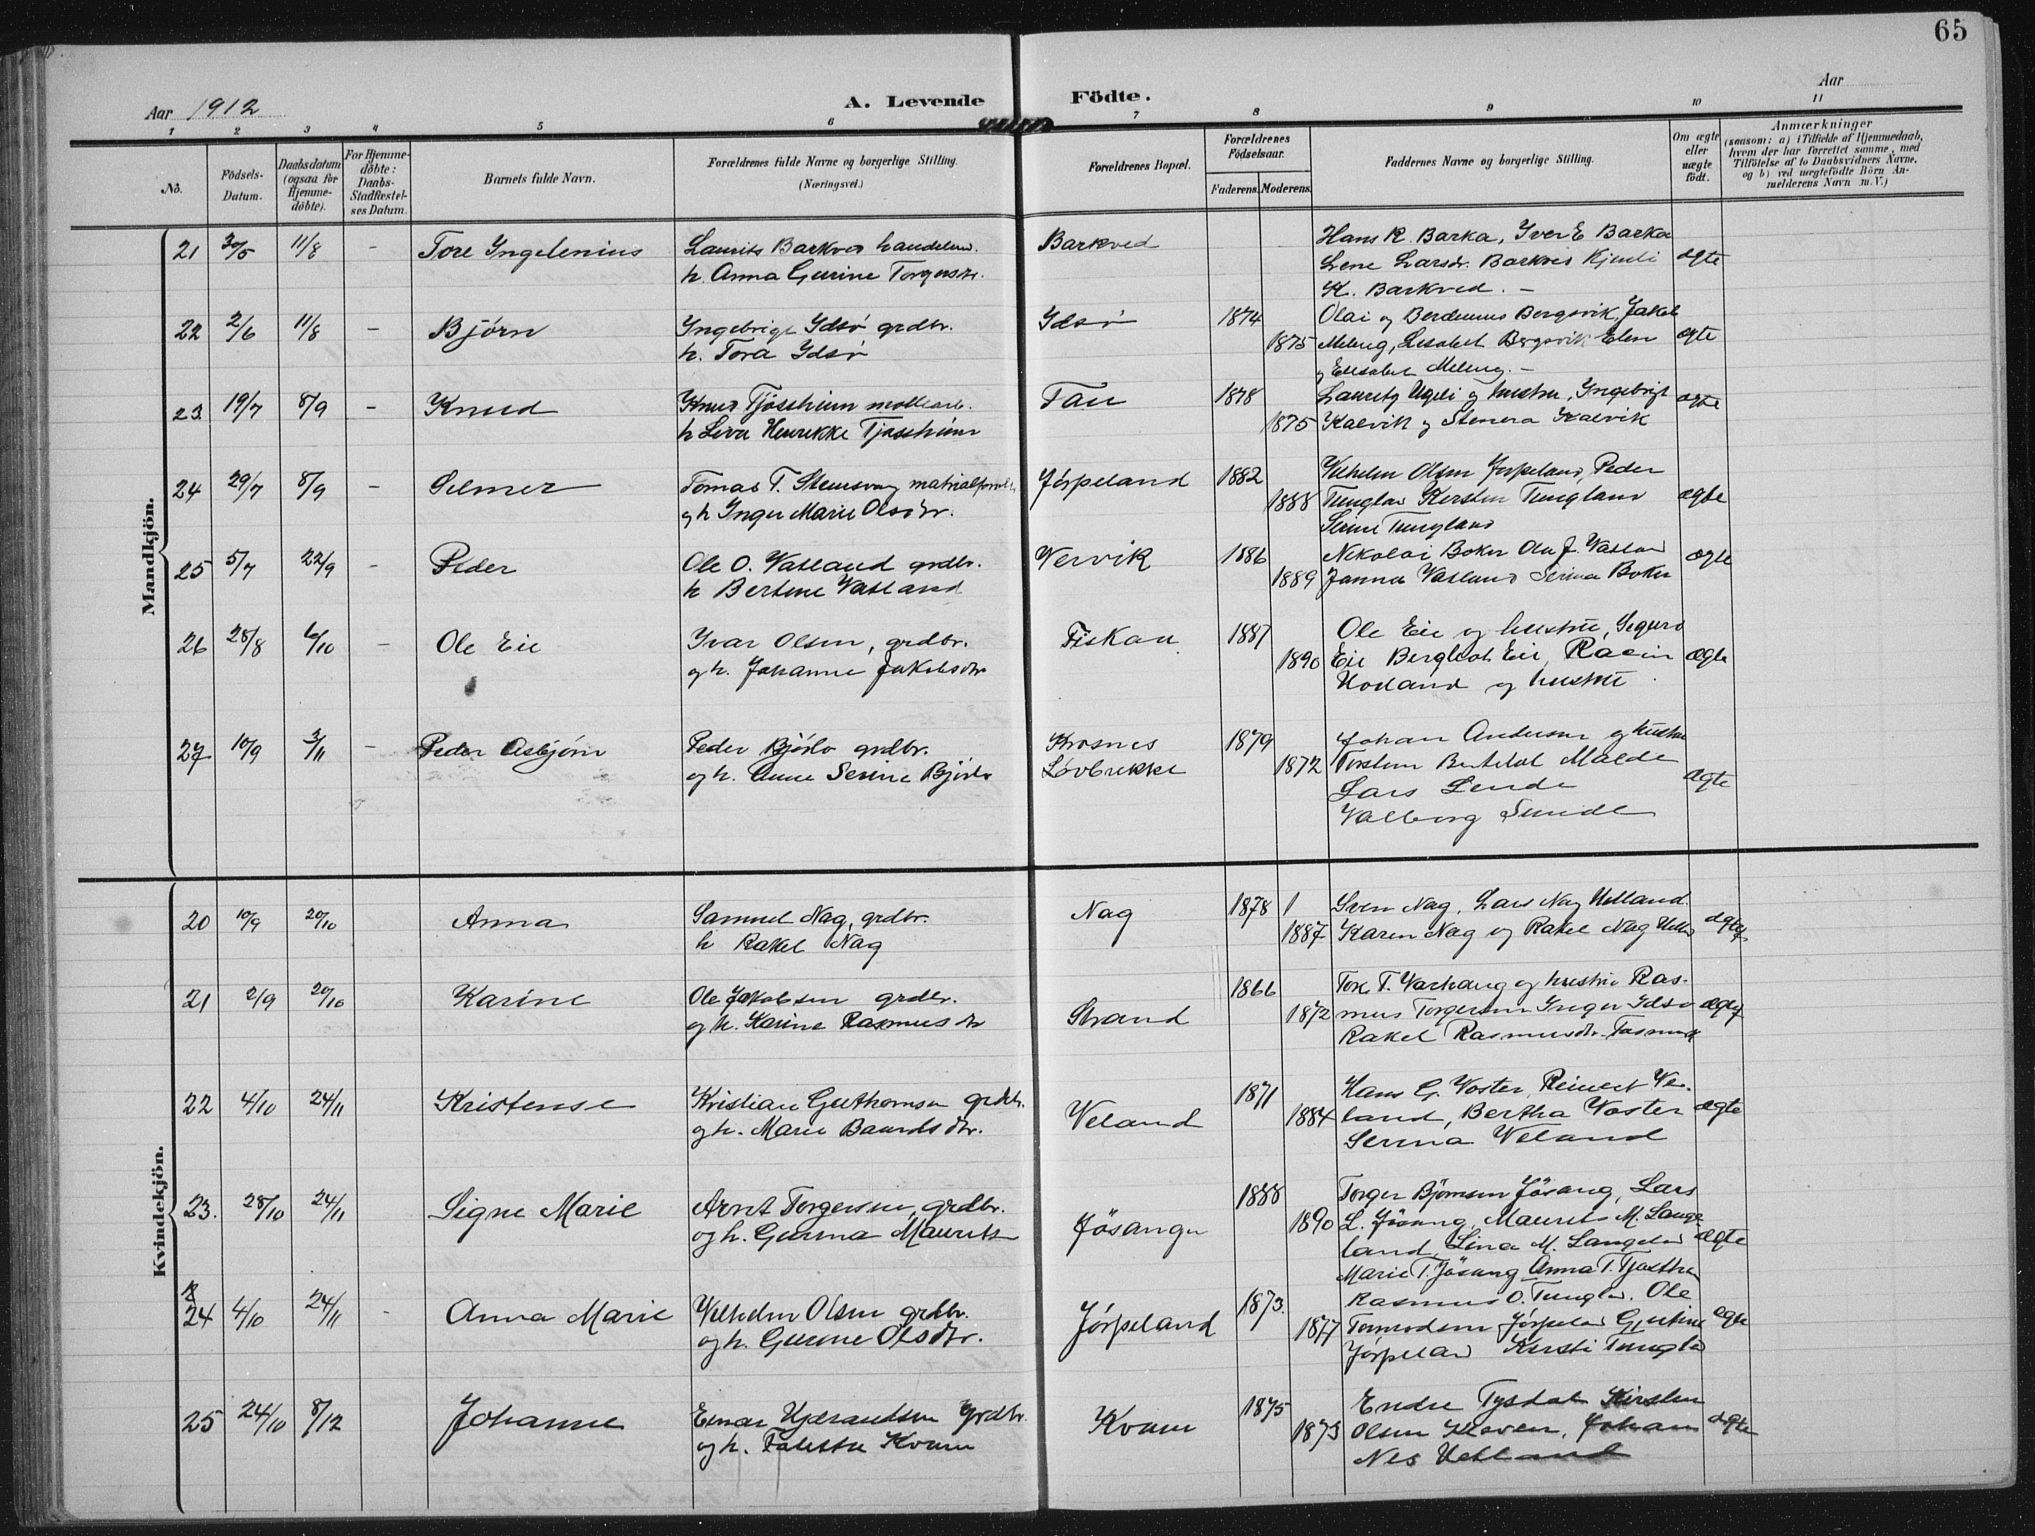 65
Aar 1912
A. Levende Födte.
Aar
1 2 3 4 5 6 7 8 9 10 11
No.
Födsels-
Datum.
Daabsdatum
(ogsaa for
Hjemme-
döbte).
For Hjemme-
döbte:
Daabs-
Stadfæstel-
ses Datum.
Barnets fulde Navn.
Forældrenes fulde Navne og borgerlige Stilling.
(Næringsvei.)
Forældrenes Bopæl.
Forældrenes
Födselsaar.
Faderens. Moderens.
Faddernes Navne og borgerlige Stilling.
Om ægte
eller
uægte
födt.
Anmærkninger
(saasom: a) i Tilfælde af Hjemmedaab,
hvem der har forrettet samme, med
Tilföielse af to Daabsvidners Navne,
og b) ved uægtefödte Börn An-
melderens Navn m.V.)
Mandkjön.
21 30/5 11/8 - Tore Ingelenius
Laurits Barkved handelsm.
h. Anna Gurine Torgersdr.
Barkved
Hans K. Barka, Iver E Barka
Lene Larsdr. Barkved
K. Barkved. -
ægte
22 2/6 11/8 - Bjørn
Ingebrigt Idsø grdbr.
h. Tora Idsø
Idsø
1874
1875
Olai og Bergsvik, Jakob
Meling, Lisabet Bergsvik Elen
og Elisabet Meling. -
ægte
23. 19/7 8/9 - Knud
Knud Tjøssheim møllearb.
h Liva Henrikke Tjøssheim
Tau
1878
1875
Lauritz og hustru, Ingebrigt
Kalvik og Kalvik
ægte
24 29/7 8/9 - Selmer
Tomas T. Stensvag matrialforvalt
og h Inger Marie Olsdtr.
Jørpeland
1882
1888
Vilhelm Olsen Jørpeland, Peder
Tungland Kersten Tungland
Serine Tungland
ægte
25 5/7 22/9 - Peder
Ole O. Vatland grdbr.
h Bertine Vatland
Vervik
1886
1889
Nikolai Boker Ola J. Vatland
Janna Vatland Serina Boker
ægte
26 28/8 6/10 - Ole Eie
Ivar Olsen, grdbr.
og h. Johanne Jakobsdtr
Fiskaa
1887
1890
Ole Eie og hustru, Sigurd
Eie Bergliot Eie,
og hustru.
ægte
27 10/9 3/11 - Peder Asbjørn
Peder Bjørlo grdbr.
og h. Anne Serine Bjørlo
Krosnes
Løvbrekke
1879
1872
Johan Andersen og hustru
Torsten Bertelot Malde
Lars Lende
Valborg Sunde
ægte
Kvindekjön.
20 10/9 20/10 Anna
Samuel Nag, grdbr.
h Rakel Nag
Nag
1878
1887
Sven Nag, Lars Nag Helland.
Karen Nag og Rakel Nag
ægte
21 2/9 20/10 Karine
Ole Jakobsen grdbr.
og h. Karine Rasmusdtr
Strand
1866
1872
Tore T. Varhaug og hustru Ras-
mus Torgersen Inger Idsø
Rakel Rasmusdtr.
ægte
22 4/10 24/11 Kristense
Kristian Guthormsen grdbr.
og h. Marie Baardsdtr.
Veland
1871
1884
Hans G. Voster, Reinert Ve-
land, Bertha Voster
Serina Veland
ægte
23. 28/10 24/11 Signe Marie
Arnt Torgersen, grdbr.
og h. Gurina Mauritsdr
Jøsange
1888
1890
Torger Bjørnsen Jøsang, Lars
L. Jøsang, Maurits M. Lange
land, Lina M. Langeland
Marie T. Jøsang Anna T.
ægte
24 4/10 24/11 - Anna Marie
Vilhelm Olsen grdbr.
og h. Gurine Olsdtr.
Jørpeland
1873.
1877
Rasmus O. Tungland. Ole
Tormodsen Jørpeland Gjertine
Jørpeland Kersti Tungland
ægte
25 24/10 8/12 Johanne
Einar Hjerandsen Grdbr.
og h. Kvam
Kvam
1875
1873
Endre Tysdal Kirsten
Olsen Kleven, Johan
Nes Helland
ægte